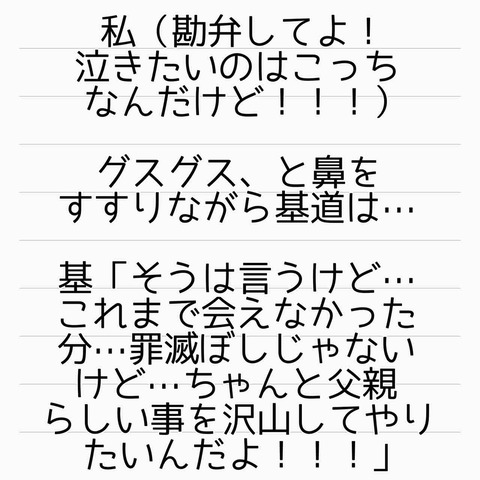 私（勘弁してよ！
泣きたいのはこっち
なんだけど！！！）
グスグス、と鼻を
すすりながら基道は…
基「そうは言うけど…
これまで会えなかった
分…罪滅ぼしじゃない
けど…ちゃんと父親
らしい事を沢山してやり
たいんだよ！！！」